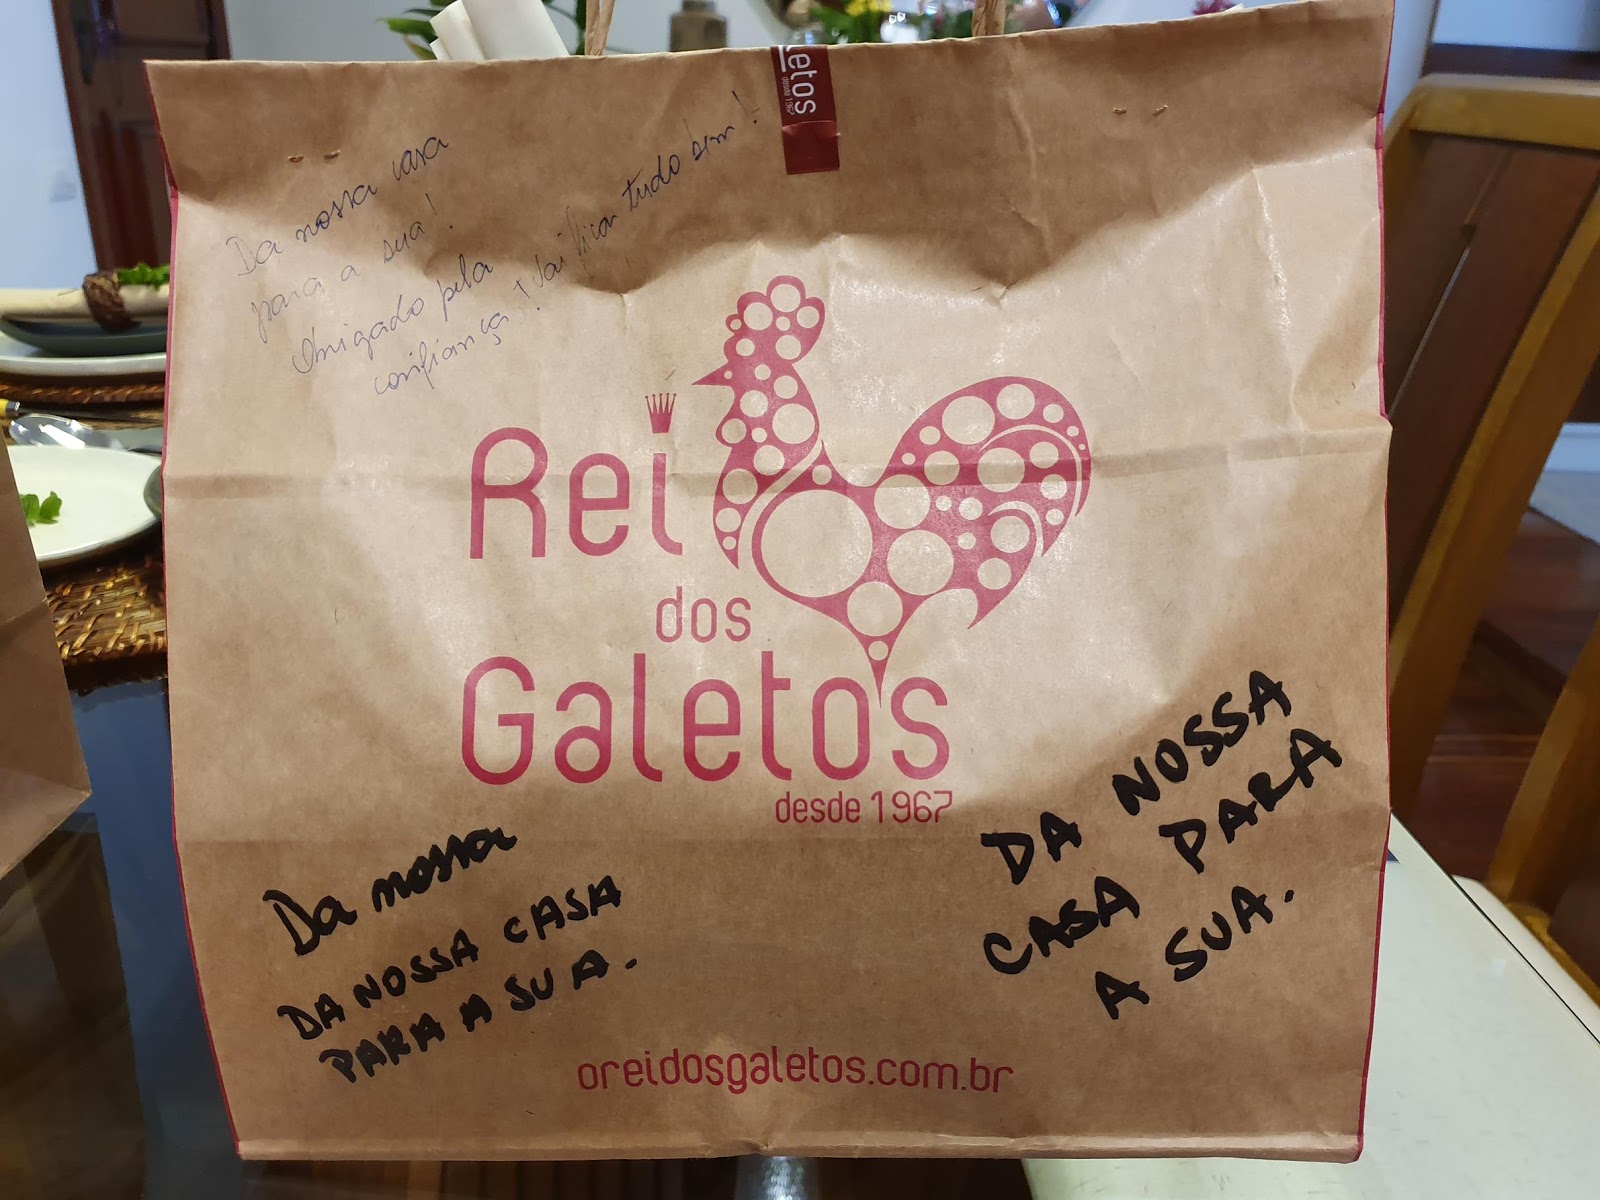 etos
desde 1967
Da nossa casa
para a sua!
Obrigado pela
confiança! Vai ficar tudo bem!
Rei
dos
Galetos
desde 1967
Da nossa
DA NOSSA CASA
PARA A SUA.
DA NOSSA
CASA PARA
A SUA.
oreidosgaletos.com.br